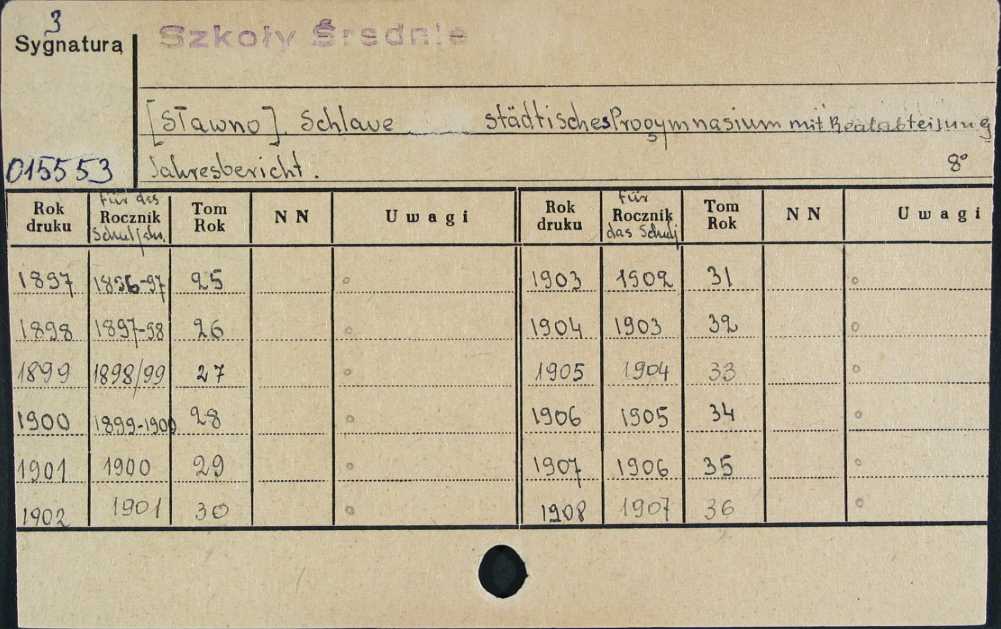 3
Sygnatura
Szkoły Średnie
[Sławno] Schlawe städtisches Progymnasium mit Realabteilung
015553 Jahresbericht. 8°
Rok druku Für das Rocznik Schuljhr. Tom Rok NN Uwagi Rok druku Für Rocznik das Schulj Tom Rok NN Uwagi
1897 1896-97 25 1903 1902 31
1898 1897-98 26 1904 1903 32
1899 1898/99 27 1905 1904 33
1900 1899-1900 28 1906 1905 34
1901 1900 29 1907 1906 35
1902 1901 30 1908 1907 36